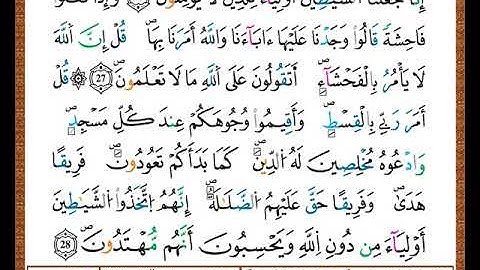 إِنَّا جَعَلْنَا ٱلشَّيَٰطِينَ أَوْلِيَآءَ لِلَّذِينَ لَا يُؤْمِنُونَ وَإِذَا فَعَلُوا۟
فَٰحِشَةً قَالُوا۟ وَجَدْنَا عَلَيْهَا ءَابَآءَنَا وَٱللَّهُ أَمَرَنَا بِهَا قُلْ إِنَّ ٱللَّهَ
لَا يَأْمُرُ بِٱلْفَحْشَآءِ أَتَقُولُونَ عَلَى ٱللَّهِ مَا لَا تَعْلَمُونَ 27 قُلْ
أَمَرَ رَبِّي بِٱلْقِسْطِ وَأَقِيمُوا۟ وُجُوهَكُمْ عِندَ كُلِّ مَسْجِدٍ
وَٱدْعُوهُ مُخْلِصِينَ لَهُ ٱلدِّينَ كَمَا بَدَأَكُمْ تَعُودُونَ فَرِيقًا
هَدَىٰ وَفَرِيقًا حَقَّ عَلَيْهِمُ ٱلضَّلَٰلَةُ إِنَّهُمُ ٱتَّخَذُوا۟ ٱلشَّيَٰطِينَ
أَوْلِيَآءَ مِن دُونِ ٱللَّهِ وَيَحْسِبُونَ أَنَّهُم مُّهْتَدُونَ 28